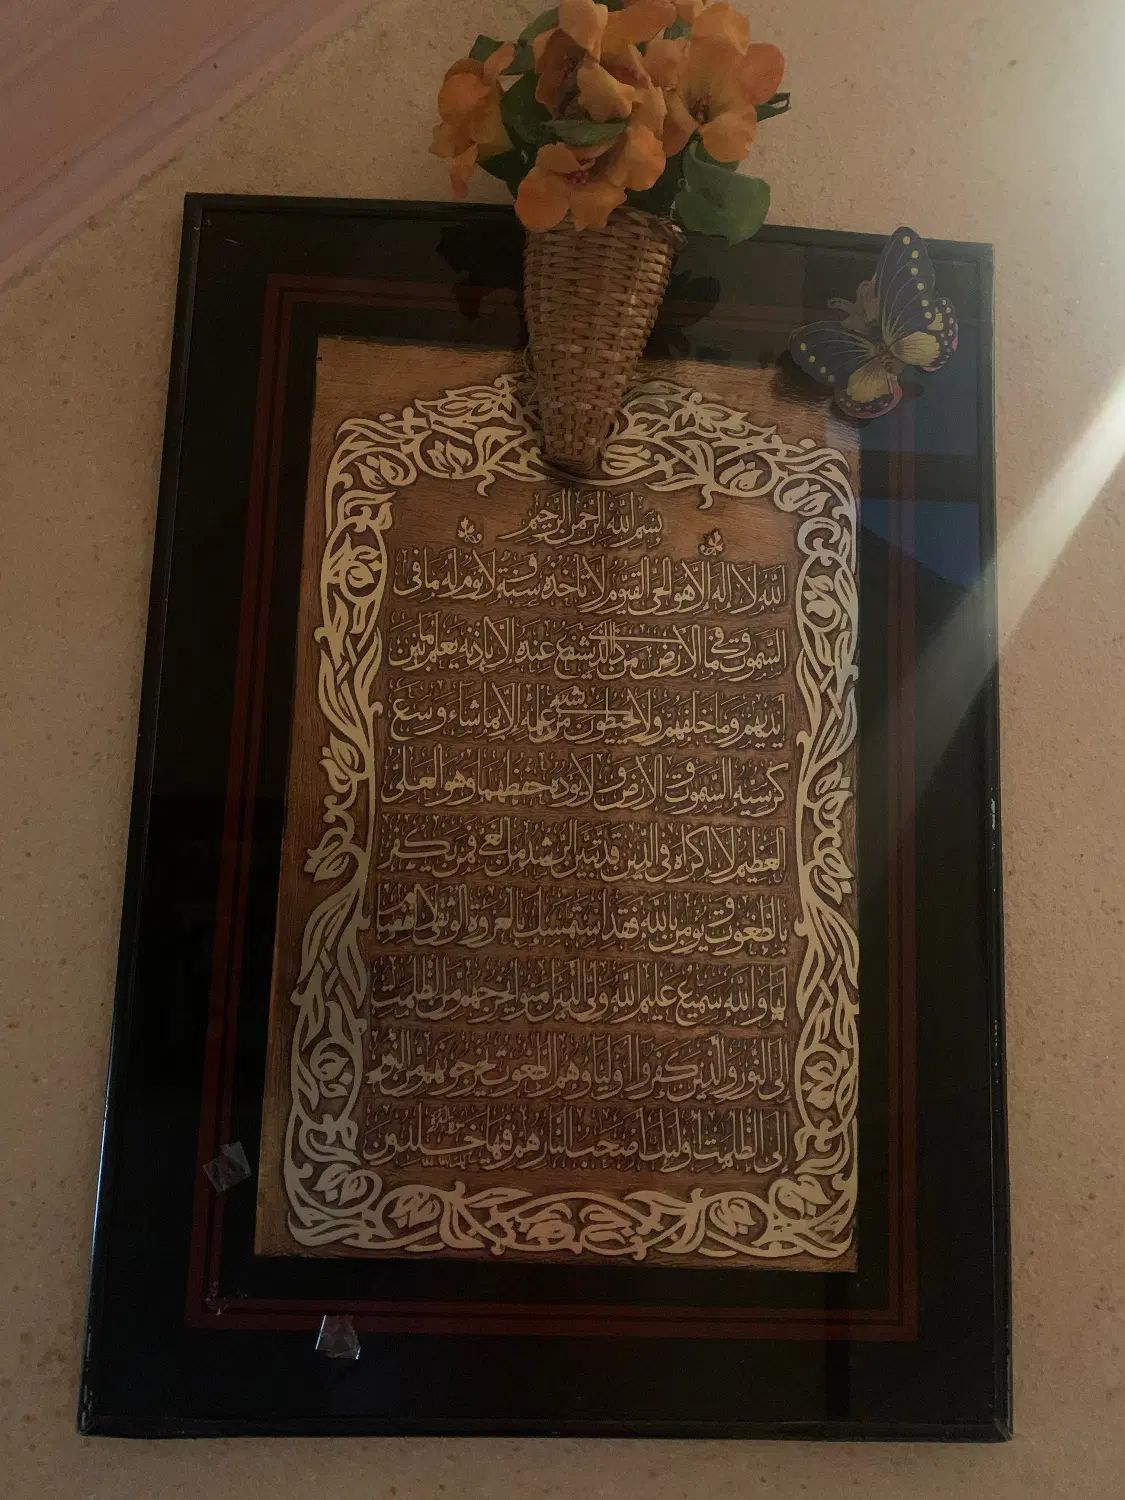 بسم الله الرحمن الرحيم
الله لا اله الا هو الحی القیوم لا تاخذه سنة ولا نوم له ما فی
السموت وما فی الارض من ذا الذی یشفع عنده الا باذنه یعلم ما بین
ایدیهم وما خلفهم ولا یحیطون بشیء من علمه الا بما شاء وسع
کرسیه السموت والارض ولا یؤده حفظهما وهو العلی
العظیم لا اکراه فی الدین قد تبین الرشد من الغی فمن یکفر
بالطغوت ویؤمن بالله فقد استمسک بالعروة الوثقی لا انفصام
لها والله سمیع علیم الله ولی الذین امنوا یخرجهم من الظلمت
الی النور والذین کفروا اولیاؤهم الطغوت یخرجونهم من النور
الی الظلمت اولئک اصحب النار هم فیها خلدون